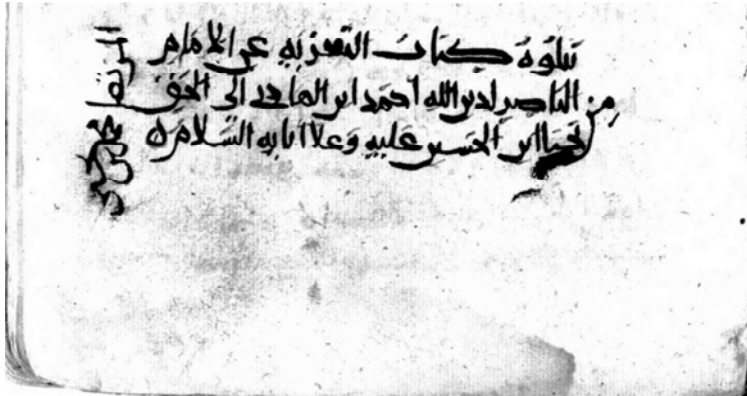 يتلوه كتاب التعزيه عن الامام
من الناصر لدين الله احمد ابن الهادي الى الحق
يحيا ابن الحسين عليه وعلا ابايه السلام